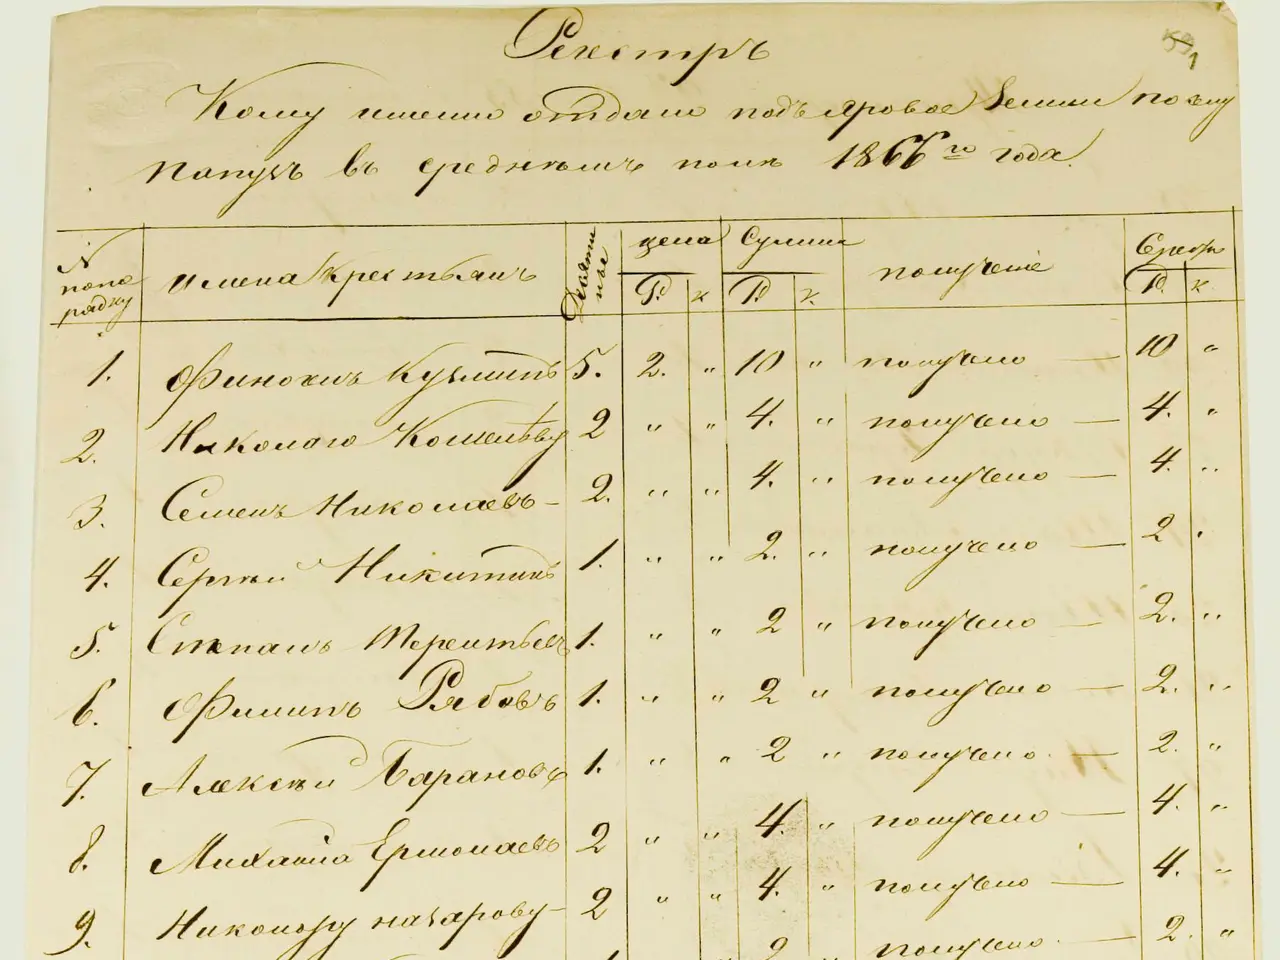 Реестръ
Кому именно отдано подъ яровое земли по
въ среднемъ поле 1866го года.
N попорядку имена крестьянъ Десятины цена Сумма получение Сребр
Р. к Р. к. Р. к
1. Финокинъ Кузминъ 5. 2. " 10 " получено — 10 "
2. Николаю Кошелеву 2 " " 4. " получено — 4. "
3. Семенъ Николаевъ — 2. " " 4. " получено — 4. "
4. Сергей Никитинъ 1. " " 2. " получено — 2 "
5. Степанъ Терентьевъ 1. " " 2 " получено — 2. "
6. Филипъ Рябовъ 1. " " 2 " получено — 2. "
7. Алексей Барановъ 1. " " 2 " получено — 2. "
8. Михаила Ермолаевъ 2 " " 4. " получено — 4. "
9. Никонору назарову — 2 " " 4. " получено — 4. "
1 2 получено — 2. "